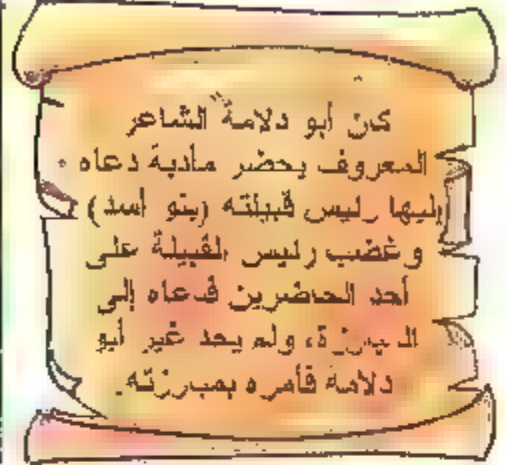 كان أبو دلامة الشاعر
المعروف يحضر مأدبة دعاه
إليها رئيس قبيلته (بنو أسد)
وغضب رئيس القبيلة على
أحد الحاضرين فدعاه إلى
المبارزة، ولم يجد غير أبو
دلامة فأمره بمبارزته.